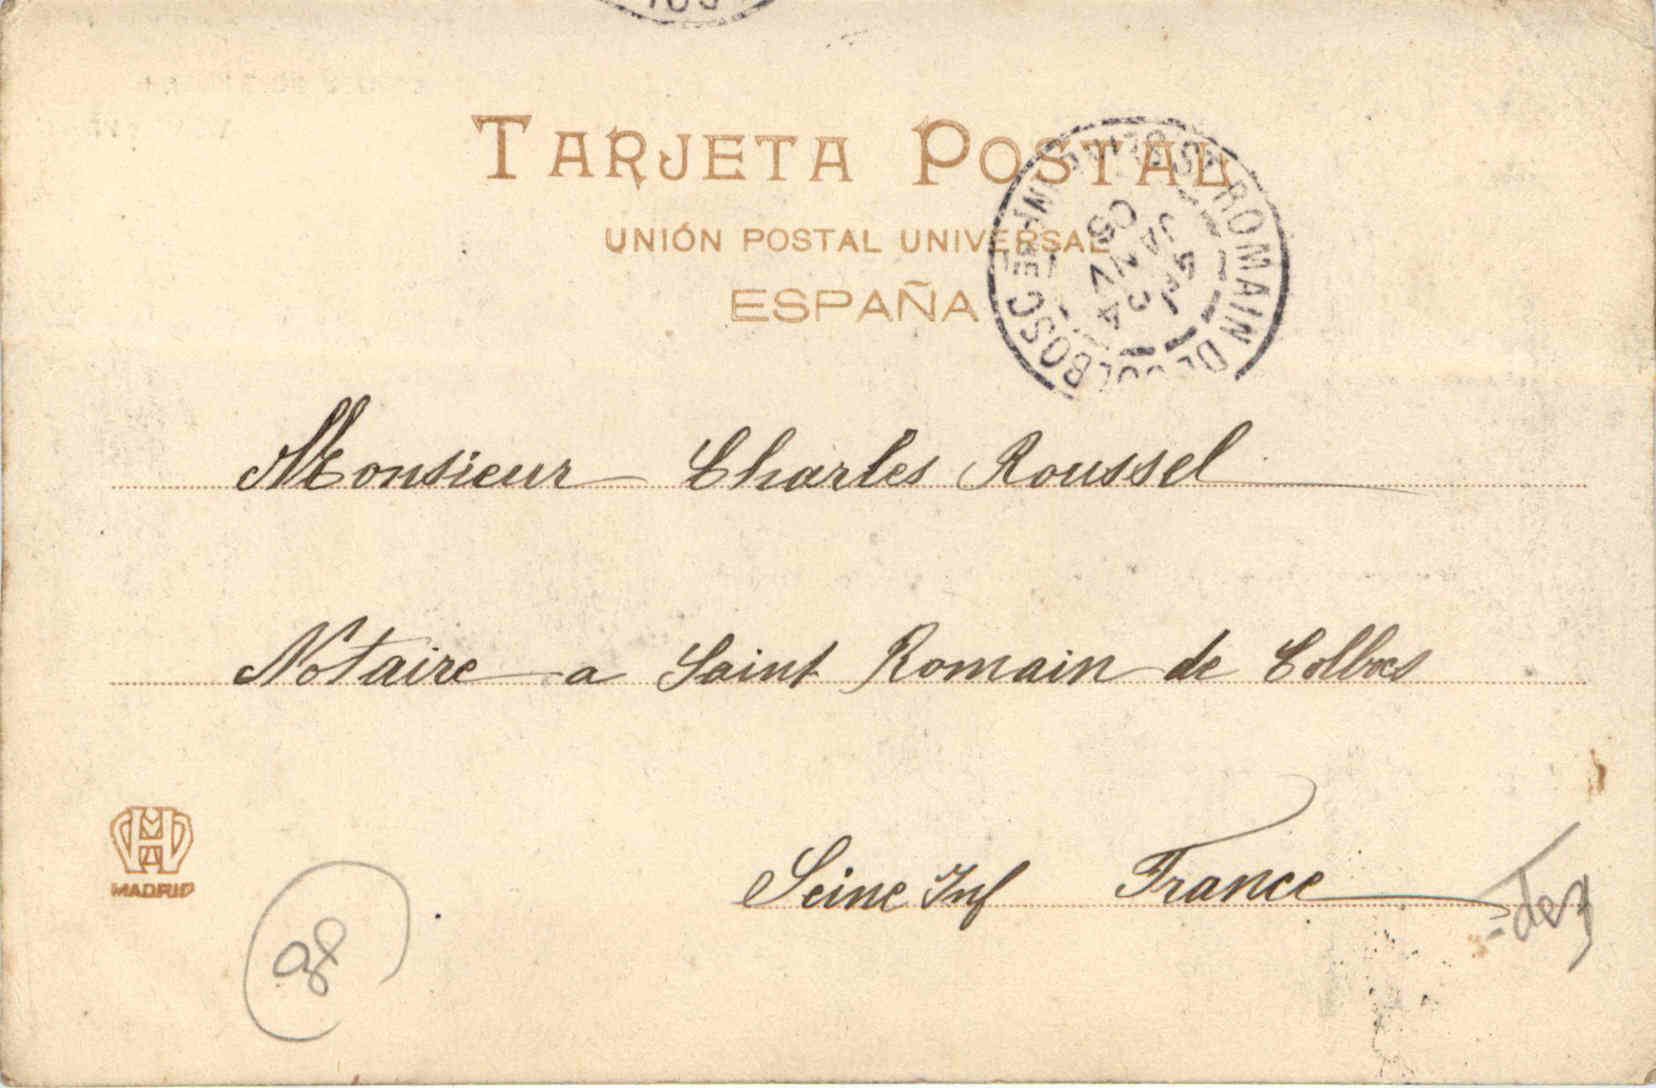 TARJETA POSTAL
UNIÓN POSTAL UNIVERSAL
ESPAÑA
ST ROMAIN DE COLBOSC
SEINE INFRE
JANV
05
Monsieur Charles Roussel
Notaire a Saint Romain de Colbocs
Seine Inf France
MADRID
98